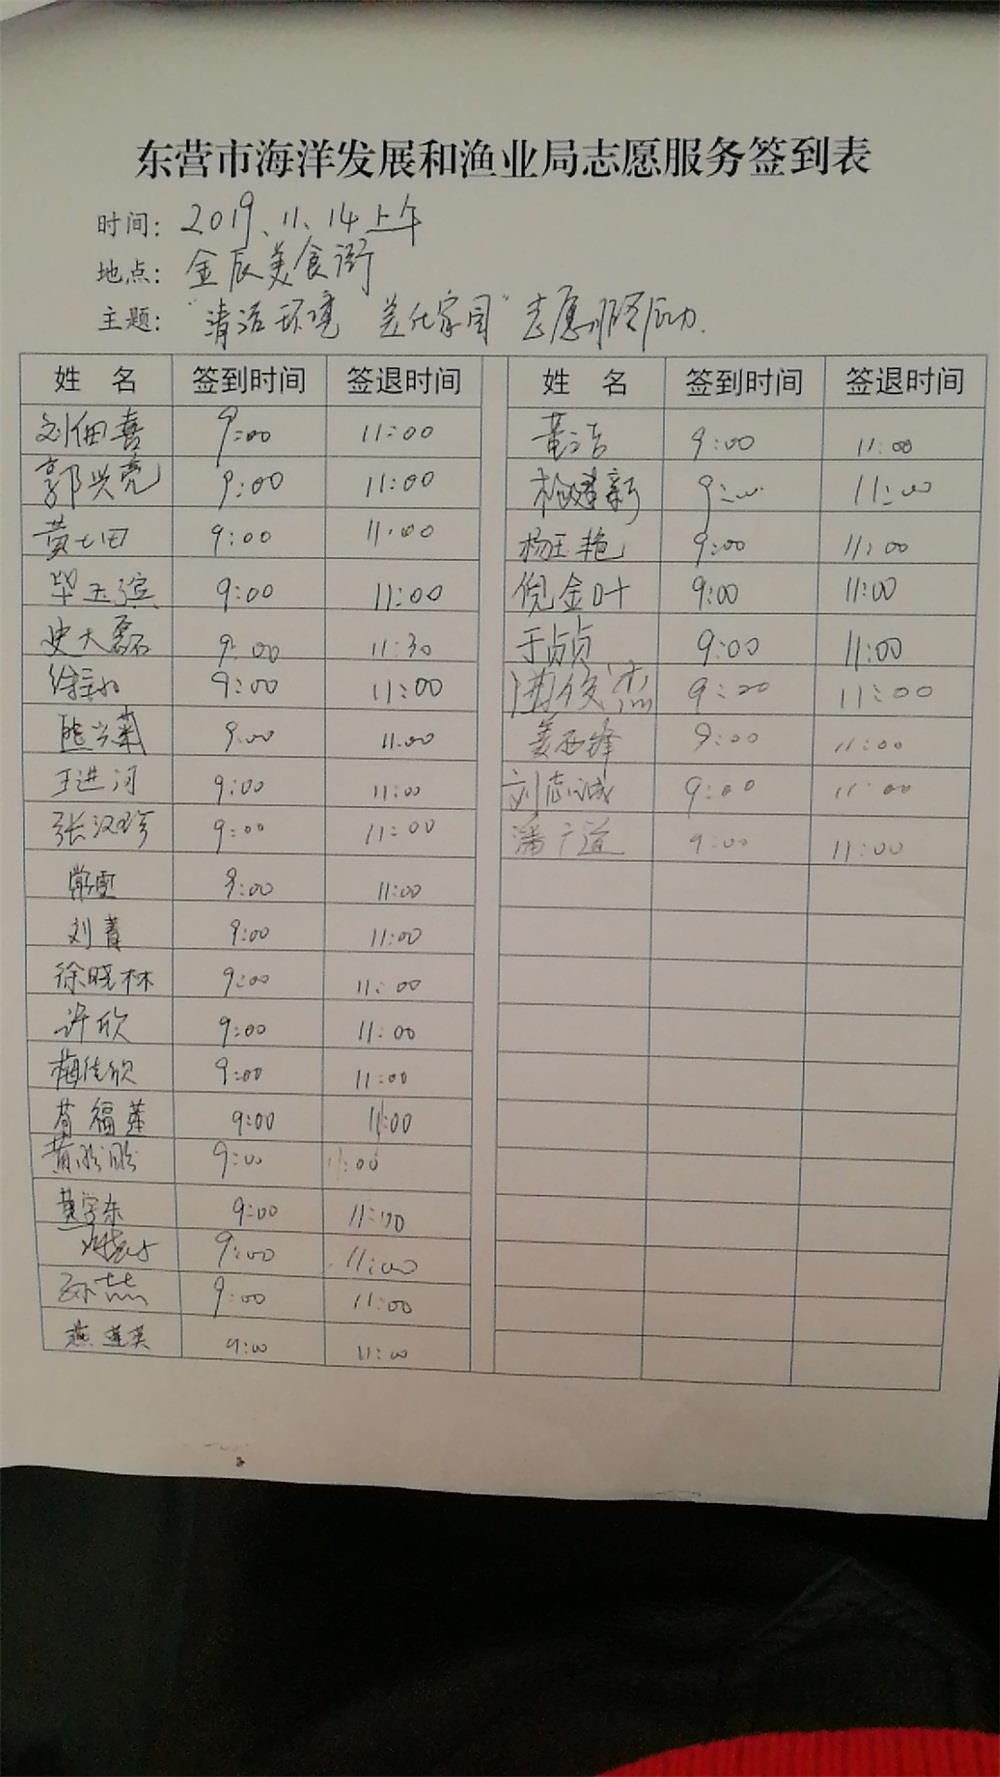 东营市海洋发展和渔业局志愿服务签到表
时间： 2019、11、14上午
地点： 金辰美食街
主题： “清洁环境 美化家园”志愿服务活动.
姓 名 签到时间 签退时间 姓 名 签到时间 签退时间
刘佃喜 9:00 11:00 黄洁 9:00 11:00
郭兴亮 9:00 11:00 杨建新 9:00 11:00
黄七田 9:00 11:00 杨玉艳 9:00 11:00
毕玉滨 9:00 11:00 倪金叶 9:00 11:00
史大磊 9:00 11:30 于贞贞 9:00 11:00
9:00 11:00 俊杰 9:00 11:00
熊兴菊 9:00 11:00 姜西峰 9:00 11:00
王进河 9:00 11:00 刘志诚 9:00 11:00
张汉珍 9:00 11:00 潘广道 9:00 11:00
常雪 9:00 11:00
刘菁 9:00 11:00
徐晓林 9:00 11:00
许欣 9:00 11:00
梅佳欣 9:00 11:00
苟福莲 9:00 11:00
黄盼盼 9:00 11:00
黄宇东 9:00 11:00
9:00 11:00
孙喆 9:00 11:00
燕莲英 9:00 11:00